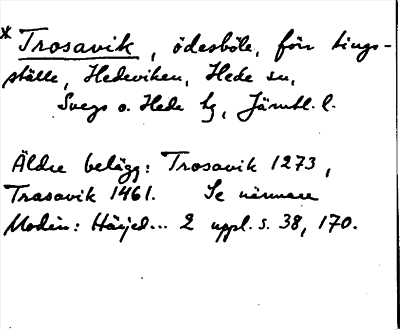 * Trosavik, ödesböle, förr tings-
ställe, Hedeviken, Hede sn,
Svegs o. Hede tg, Jämtl. l.
Äldre belägg: Trosavik 1273,
Trasavik 1461. Se närmare
Modin: Härjed... 2 uppl. s. 38, 170.